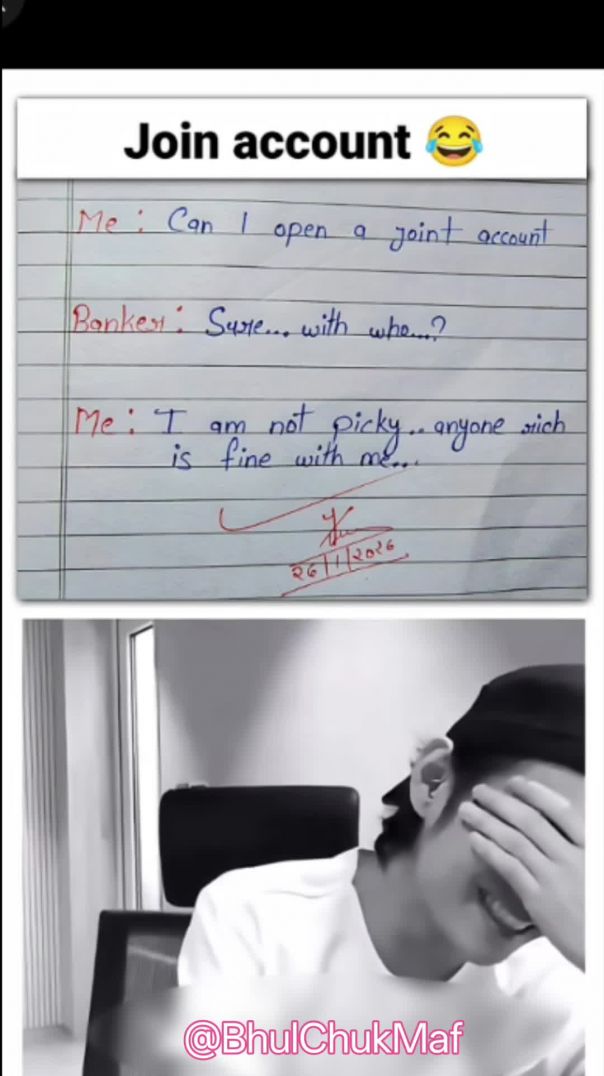 Join account 😂
Me : Can I open a joint account
Banker : Sure... with who...?
Me : I am not picky.. anyone rich
is fine with me...
२६/१/२०२६
@BhulChukMaf